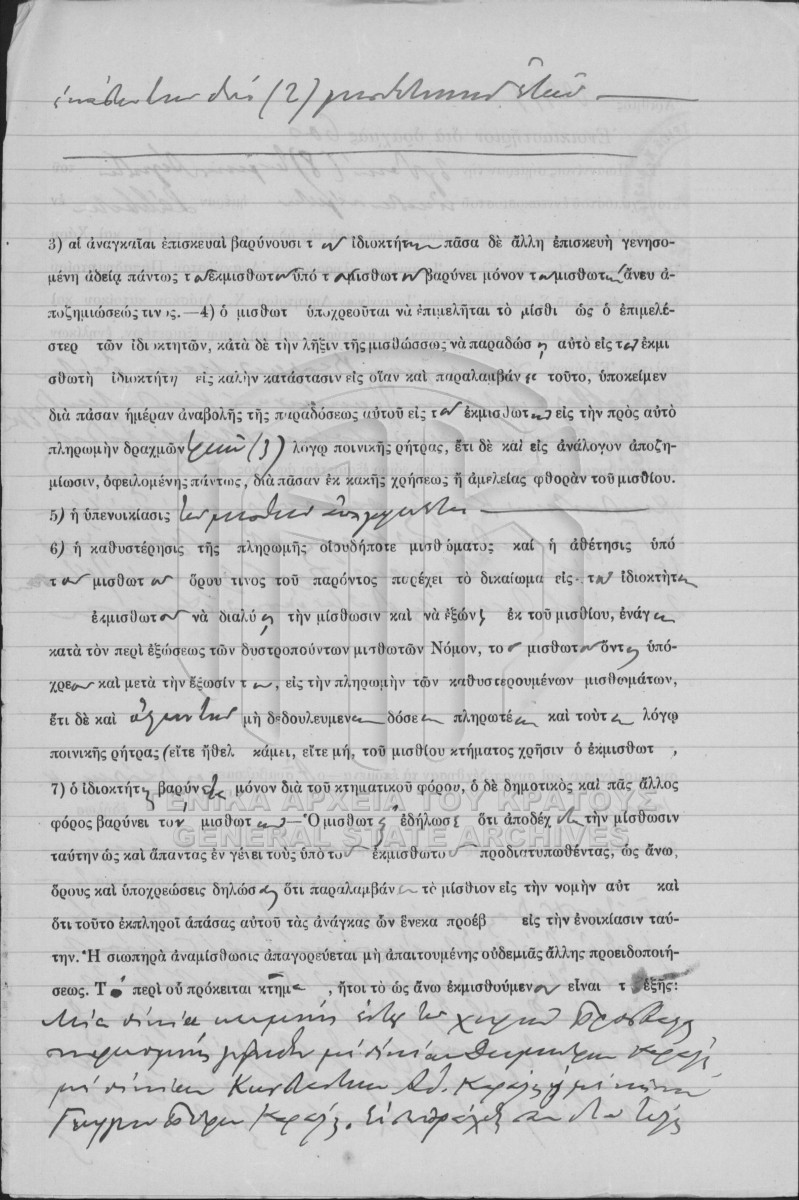 (2)
3) αἱ ἀναγκαῖαι ἐπισκευαὶ βαρύνουσι τὸν ἰδιοκτήτην πᾶσα δὲ ἄλλη ἐπισκευὴ γενησο-
μένη ἀδείᾳ πάντως τοῦ ἐκμισθωτοῦ ὑπὸ τοῦ μισθωτοῦ βαρύνει μόνον τὸν μισθωτὴν ἄνευ ἀ-
ποζημιώσεώς τινος.—4) ὁ μισθωτ ὑποχρεοῦται νὰ ἐπιμελῆται τὸ μίσθι ὡς ὁ ἐπιμελέ-
στερ τῶν ἰδιοκτητῶν, κατὰ δὲ τὴν λῆξιν τῆς μισθώσεως νὰ παραδώσῃ αὐτὸ εἰς τὸν ἐκμι
σθωτὴ ἰδιοκτήτη εἰς καλὴν κατάστασιν εἰς οἵαν καὶ παραλαμβάνει τοῦτο, ὑποκείμεν
διὰ πᾶσαν ἡμέραν ἀναβολῆς τῆς παραδόσεως αὐτοῦ εἰς τὸν ἐκμισθωτὴν εἰς τὴν πρὸς αὐτὸ
πληρωμὴν δραχμῶν τριῶν (3) λόγῳ ποινικῆς ρήτρας, ἔτι δὲ καὶ εἰς ἀνάλογον ἀποζη-
μίωσιν, ὀφειλομένης πάντως, διὰ πᾶσαν ἐκ κακῆς χρήσεως ἢ ἀμελείας φθορὰν τοῦ μισθίου.
5) ἡ ὑπενοικίασις τοῦ μισθίου ἀπαγορεύεται
6) ἡ καθυστέρησις τῆς πληρωμῆς οἱουδήποτε μισθώματος καὶ ἡ ἀθέτησις ὑπὸ
τοῦ μισθωτοῦ ὅρου τινος τοῦ παρόντος παρέχει τὸ δικαίωμα εἰς τὸν ἰδιοκτήτην
ἐκμισθωτὴν νὰ διαλύσῃ τὴν μίσθωσιν καὶ νὰ ἐξώσῃ ἐκ τοῦ μισθίου, ἐνάγων
κατὰ τὸν περὶ ἐξώσεως τῶν δυστροπούντων μισθωτῶν Νόμον, τοῦ μισθωτοῦ ὄντος ὑπό-
χρεου καὶ μετὰ τὴν ἔξωσίν του, εἰς τὴν πληρωμὴν τῶν καθυστερουμένων μισθωμάτων,
ἔτι δὲ καὶ ἁπασῶν τῶν μὴ δεδουλευμένων δόσεων πληρωτέων καὶ τούτων λόγῳ
ποινικῆς ρήτρας (εἴτε ἤθελ κάμει, εἴτε μή, τοῦ μισθίου κτήματος χρῆσιν ὁ ἐκμισθωτ ,
7) ὁ ἰδιοκτήτης βαρύνεται μόνον διὰ τοῦ κτηματικοῦ φόρου, ὁ δὲ δημοτικὸς καὶ πᾶς ἄλλος
φόρος βαρύνει τὸν μισθωτὴν—Ὁ μισθωτὴς ἐδήλωσε ὅτι ἀποδέχεται τὴν μίσθωσιν
ταύτην ὡς καὶ ἅπαντας ἐν γένει τοὺς ὑπὸ τοῦ ἐκμισθωτοῦ προδιατυπωθέντας, ὡς ἄνω,
ὅρους καὶ ὑποχρεώσεις δηλώσας ὅτι παραλαμβάνει τὸ μίσθιον εἰς τὴν νομὴν αὐτ καὶ
ὅτι τοῦτο ἐκπληροῖ ἁπάσας αὐτοῦ τὰς ἀνάγκας ὧν ἕνεκα προέβ εἰς τὴν ἐνοικίασιν ταύ-
την. Ἡ σιωπηρὰ ἀναμίσθωσις ἀπαγορεύεται μὴ ἀπαιτουμένης οὐδεμιᾶς ἄλλης προειδοποιή-
σεως. Τὸ περὶ οὗ πρόκειται κτῆμα , ἤτοι τὸ ὡς ἄνω ἐκμισθούμενον εἶναι τ ἑξῆς:
Μία οἰκία κειμένη ἐντὸς τοῦ χωρίου
μὲ οἰκίαν
μὲ οἰκίαν Κωνσταντίνου Ἀθ.
Γεωργίου
ΓΕΝΙΚΑ ΑΡΧΕΙΑ ΤΟΥ ΚΡΑΤΟΥΣ
GENERAL STATE ARCHIVES